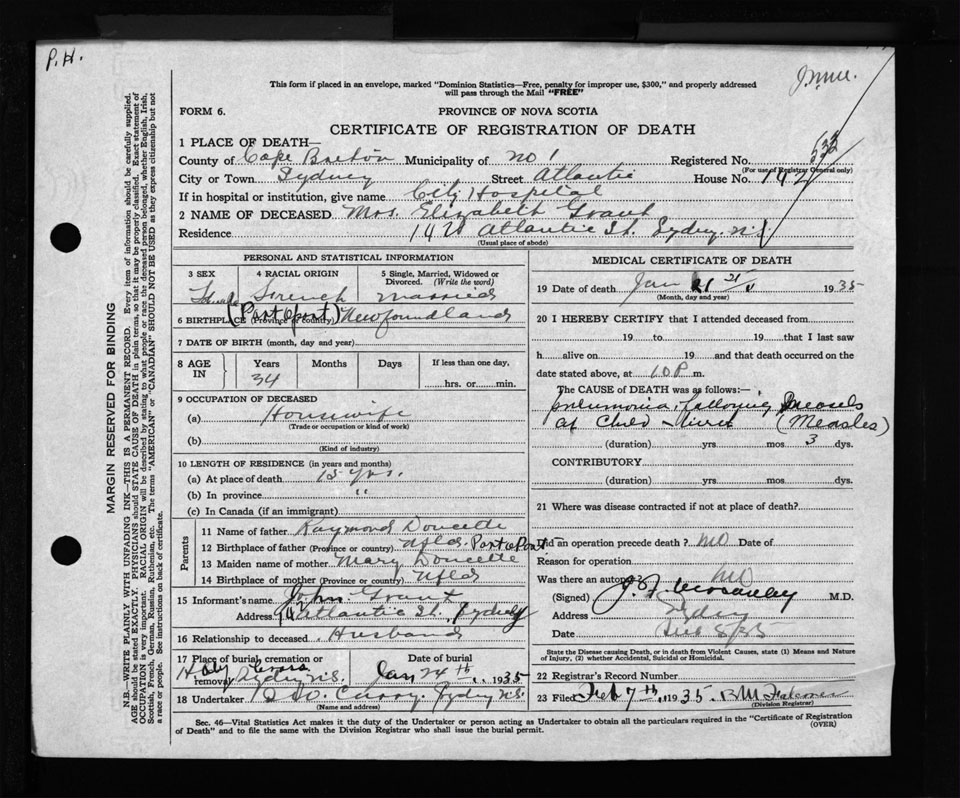 P.H.
This form if placed in an envelope, marked "Dominion Statistics—Free, penalty for improper use, $300," and properly addressed
will pass through the Mail "FREE"
FORM 6.
PROVINCE OF NOVA SCOTIA
CERTIFICATE OF REGISTRATION OF DEATH
1 PLACE OF DEATH—
County of Cape Breton Municipality of No 1 Registered No.
(For use of Registrar General only)
City or Town Sydney Street Atlantic House No. 142
If in hospital or institution, give name City Hospital
2 NAME OF DECEASED Mrs. Elizabeth Grant
Residence 142 Atlantic St. Sydney. N.S.
(Usual place of abode)
PERSONAL AND STATISTICAL INFORMATION
3 SEX
Female
4 RACIAL ORIGIN
French
5 Single, Married, Widowed or Divorced. (Write the word)
Married
6 BIRTHPLACE (Province or country) (Port a port) Newfoundland
7 DATE OF BIRTH (month, day and year)
8 AGE IN
Years
34
Months
Days
If less than one day,
hrs. or min.
9 OCCUPATION OF DECEASED
(a) Housewife
(Trade or occupation or kind of work)
(b)
(Kind of industry)
10 LENGTH OF RESIDENCE (in years and months)
(a) At place of death 15 yrs.
(b) In province "
(c) In Canada (if an immigrant)
Parents
11 Name of father Raymond Doucette
12 Birthplace of father (Province or country) Nfld. Port a Port
13 Maiden name of mother Mary Doucette
14 Birthplace of mother (Province or country) Nfld
15 Informant's name John Grant
Address 142 Atlantic St. Sydney
16 Relationship to deceased Husband
17 Place of burial, cremation or removal Holy Cross Sydney N.S.
Date of burial
Jan 24th 1935
18 Undertaker Curry. Sydney N.S.
(Name and address)
MEDICAL CERTIFICATE OF DEATH
19 Date of death Jan 21 1935
(Month, day and year)
20 I HEREBY CERTIFY that I attended deceased from
19 to 19 that I last saw
h alive on 19 and that death occurred on the
date stated above, at 10 P m.
The CAUSE OF DEATH was as follows:—
pneumonia following measels
(Measles)
(duration) yrs. mos 3 dys.
CONTRIBUTORY
(duration) yrs. mos dys.
21 Where was disease contracted if not at place of death?
Did an operation precede death? No Date of
Reason for operation
Was there an autopsy No
(Signed) M.D.
Address Sydney
Date Feb 8/35
State the Disease causing Death, or in death from Violent Causes, state (1) Means and Nature of Injury, (2) whether Accidental, Suicidal or Homicidal.
22 Registrar's Record Number
23 Filed Feb 7th, 1935.
(Division Registrar)
Sec. 46—Vital Statistics Act makes it the duty of the Undertaker or person acting as Undertaker to obtain all the particulars required in the "Certificate of Registration
of Death" and to file the same with the Division Registrar who shall issue the burial permit.
(OVER)
MARGIN RESERVED FOR BINDING
N.B.—WRITE PLAINLY WITH UNFADING INK—THIS IS A PERMANENT RECORD. Every item of information should be carefully supplied.
AGE should be stated EXACTLY. PHYSICIANS should STATE CAUSE OF DEATH in plain terms, so that it may be properly classified. Exact statement of
OCCUPATION is very important. RACIAL ORIGIN will be described by stating to what people or race the deceased person belonged, whether English, Irish,
Scottish, French, German, Russian, Ruthenian, etc. The terms "AMERICAN" or "CANADIAN" SHOULD NOT BE USED as they express citizenship but not
a race or people. See instructions on back of certificate.